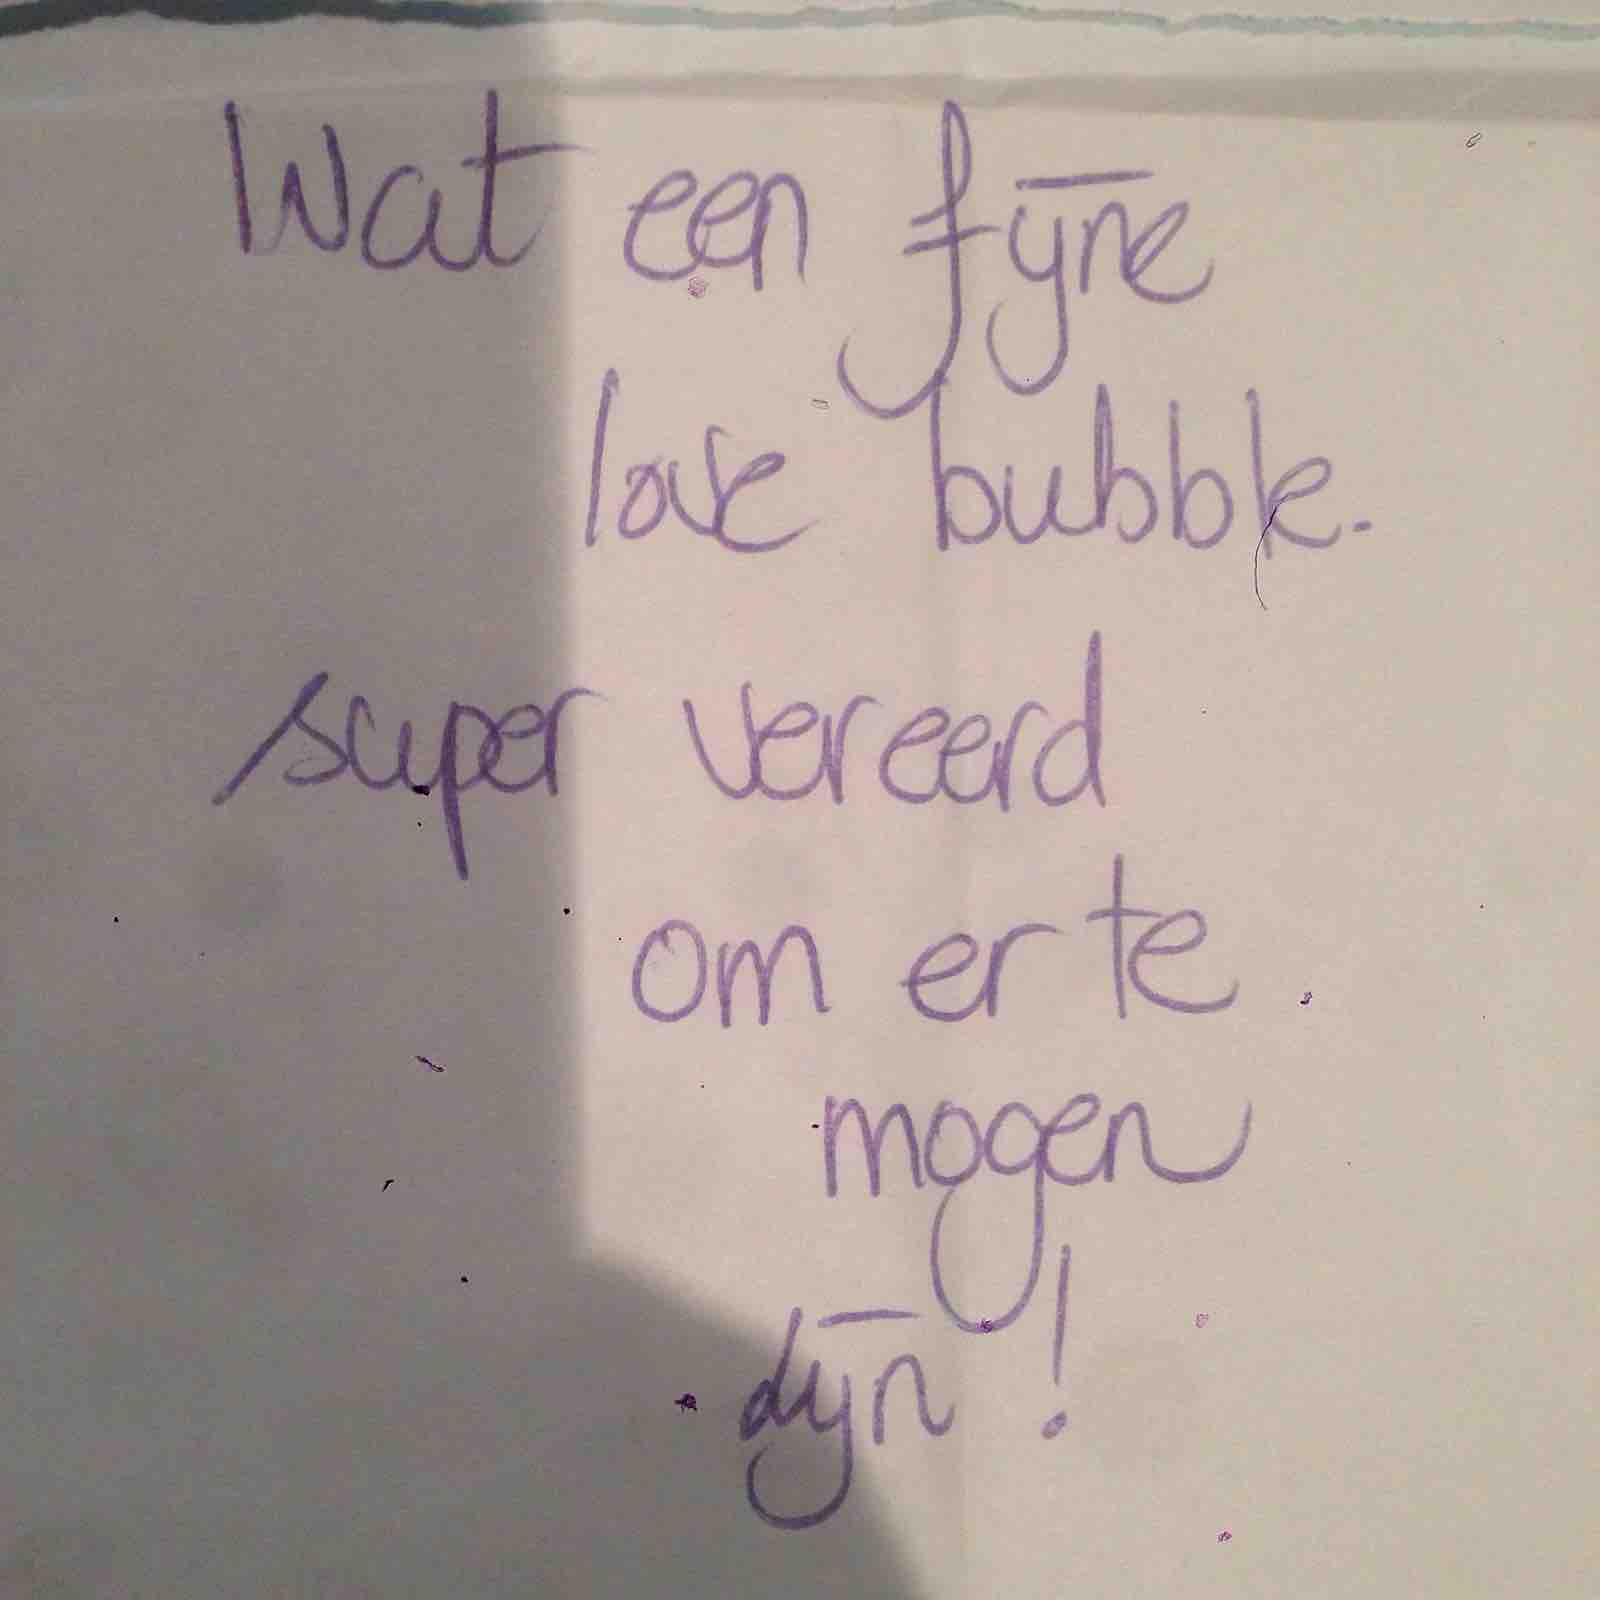 Wat een fijne
love bubble.
super vereerd
om er te
mogen
zijn!